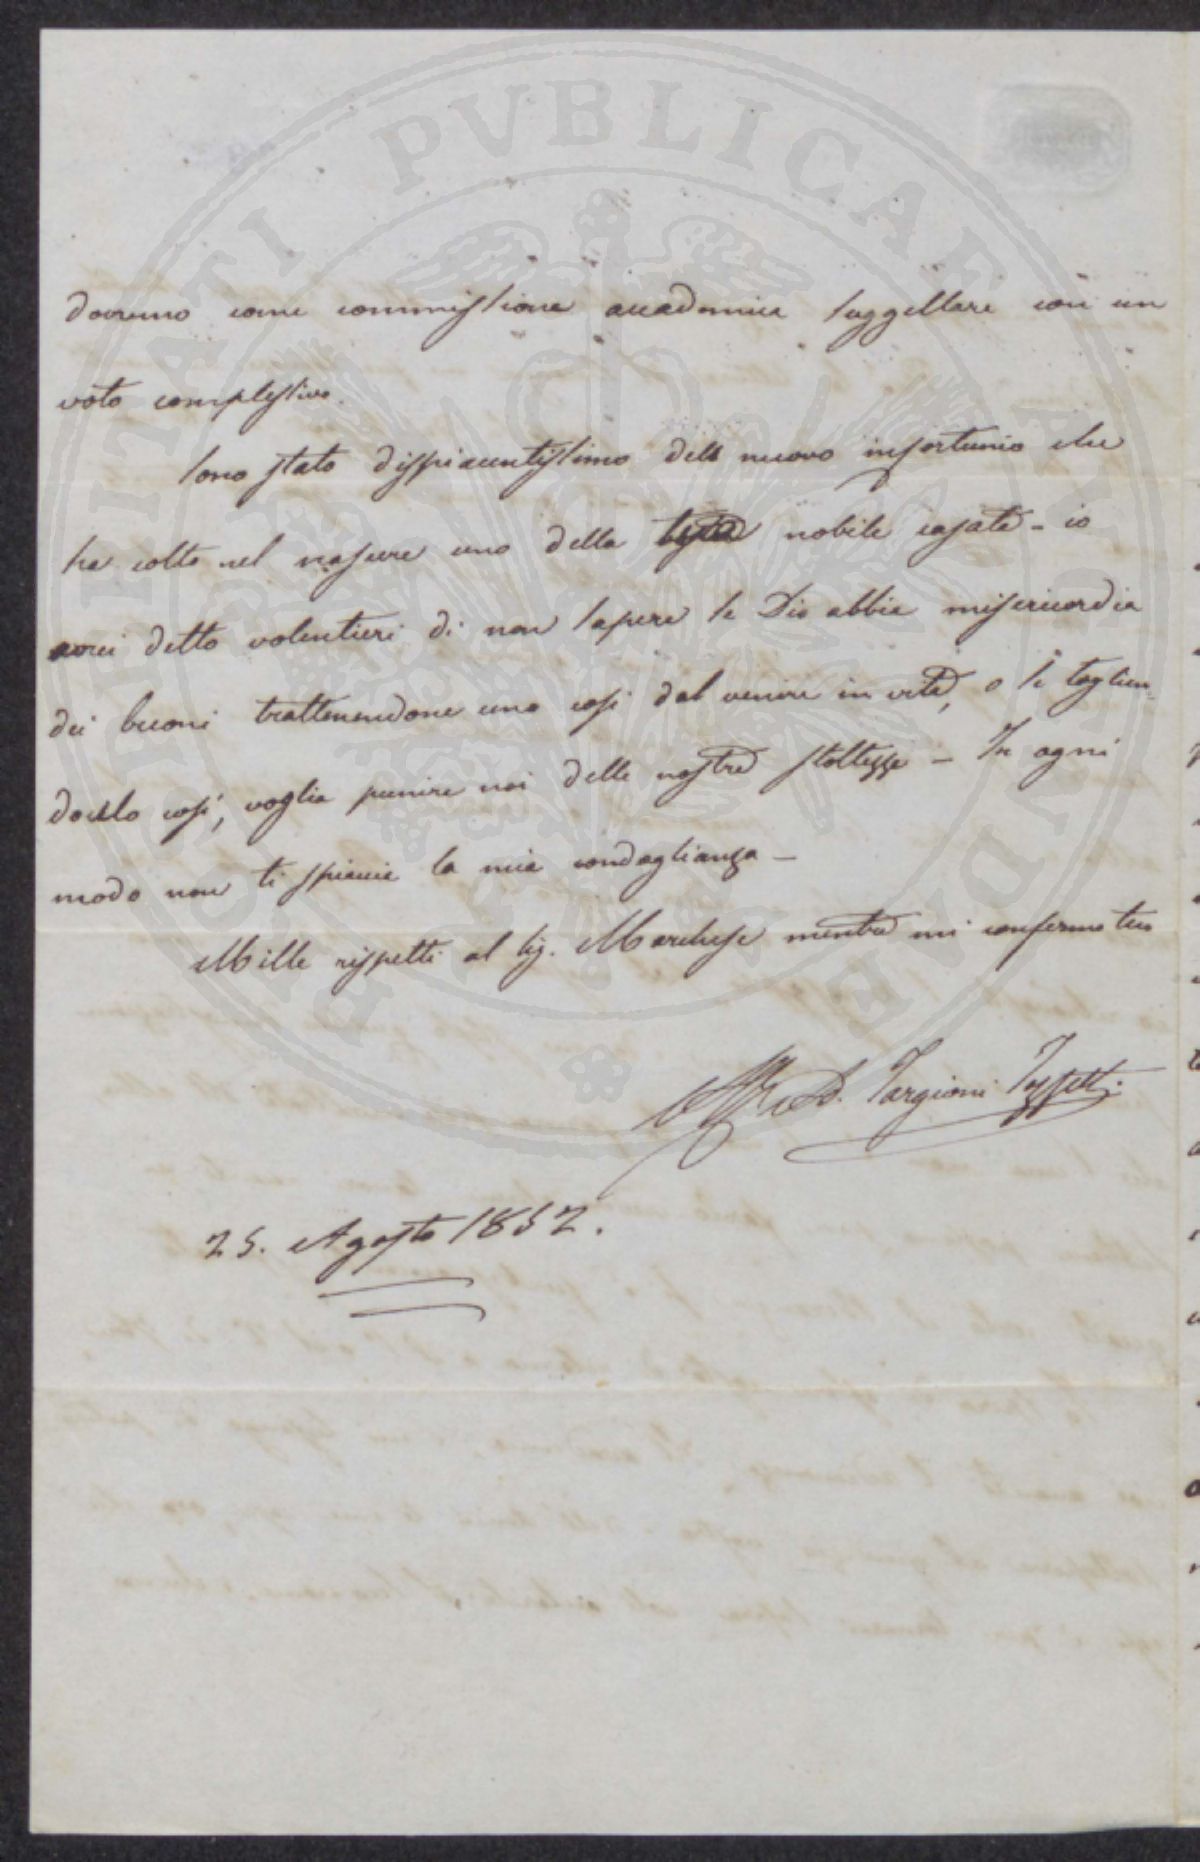 PVBLICAE VTILITATI
dovremo come commissione accademica suggellare con un
voto complessivo.
Sono stato dispiacentissimo dell nuovo infortunio che
ha colto nel nascere uno della nobile casata - io
avrei detto volentieri di non sapere se Dio abbia misericordia
dei buoni trattenendone uno così dal venire in vita, o se toglien-
doselo così, voglia punire noi delle nostre stoltezze - In ogni
modo non ti spiaccia la mia condoglianza -
Mille rispetti al Sig. Marchese mentre mi confermo tuo
Aff. Ad. Targioni Tozzetti
25. Agosto 1852.